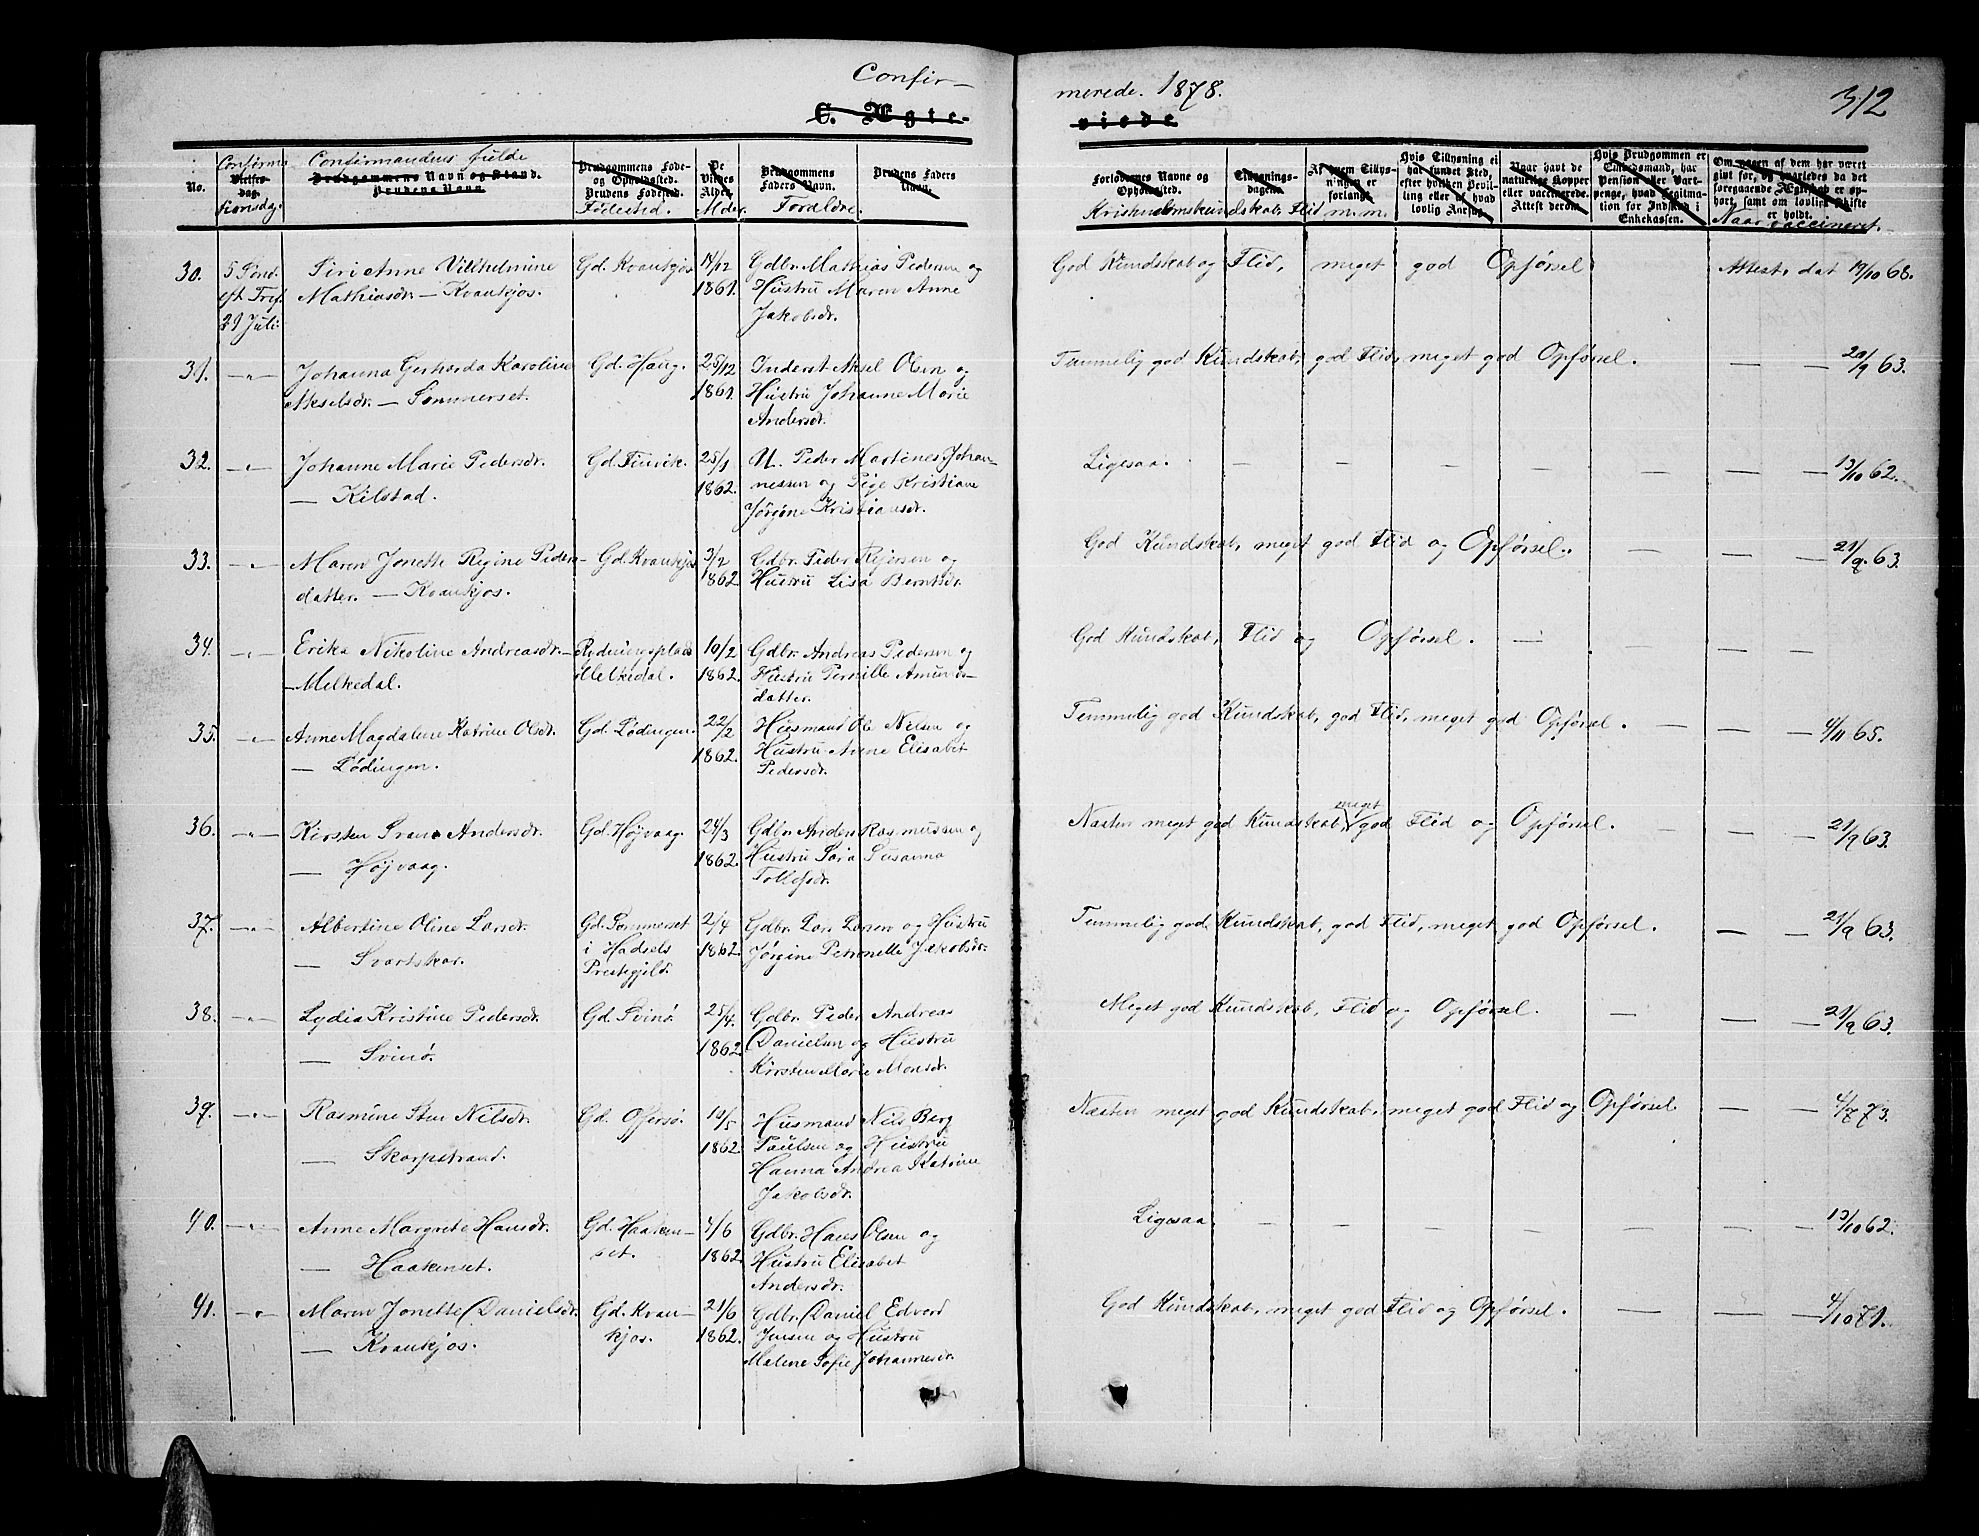 Confir-
merede. 1878.
312
C. Ægte-
viede
No.
Confirma
Vielses-
dag.
tionsdag
Confirmandens fulde
Brudgommens Navn og Stand.
Brudens Navn.
Brudgommens Føde-
og Opholdssted.
Brudens Fødested.
Fødested.
De
Viedes
Alder.
Alder
Brudgommens
Faders Navn.
Forældre.
Brudens Faders
Navn.
Forlovernes Navne og
Opholdssted.
Kristendomskundskab, Flid m.m.
Tillysnings-
dagene.
Af hvem Tillys-
ningen er
forlangt.
Hvis Tillysning ei
har fundet Sted,
efter hvilken Bevil-
ling eller af hvad
lovlig Aarsag.
Naar havt de
naturlige Kopper
eller vaccinerede.
Attest derom.
Hvis Brudgommen er
Enkedsmand, har
Pension eller Vart-
penge, hvad Legitima-
tion for Indskud i
Enkekassen.
Om nogen af dem har været
gift før, og hvorledes da det
foregaaende Ægteskab er op-
hørt, samt om lovligt Skifte
er holdt.
Naar vaccineret.
30. 5 Sønd. Siri Anne Vilhelmine Gd. Kvankjos 14/12 Gdbr. Mathias Pedersen og God Kundskab og Flid, meget god Opførsel Attest, dat 19/10 68.
eft Tref. Mathiasdr. — Kvankjos. 1861 Hustru Maren Anne
21 Juli: Jakobsdr.
31. —„— Johanna Gerharda Karoline Gd. Haug. 25/12 Inderst Aksel Olsen og Temmelig god Kundskab, god Flid, meget god Opførsel. — — 20/9 63.
Akselsdr. — Sommerset. 1861. Hustru Johanne Marie
Andersdr.
32. —„— Johanne Marie Pedersdr. Gd. Finvik. 25/1 U. Peder Martines Johan- Ligesaa. — — — — — — — 13/10 62.
— Kilstad. 1862. nessen og Pige Kristiane
Jørgine Kristiansdr.
33. —„— Maren Jonette Regine Peders- Gd. Kvankjos 3/2 Gdbr. Peder Reiersen og God Kundskab, meget god Flid og Opførsel. — — — 21/9 63.
datter. — Kvankjos. 1862 Hustru Lisa Berntsdr.
34. —„— Erika Nikoline Andreasdr. Rydningsplads 19/2 Gdbr. Andreas Pedersen og God Kundskab, Flid og Opførsel. — — — —
— Melkedal. Melkedal. 1862. Hustru Pernille Amunds-
datter.
35. —„— Anne Magdalene Katrine Olsdr. Gd. Lødingen. 22/2 Husmand Ole Nilsen og Temmelig god Kundskab, god Flid, meget god Opførsel. — — — 4/11 65.
— Lødingen. 1862. Hustru Anne Elisabet
Pedersdr.
36. —„— Kirsten Andersdr. Gd. Højvaag. 24/3 Gdbr. Anders Rasmussen og Næsten meget god Kundskab, meget god Flid og Opførsel. — — — 21/9 63.
— Højvaag. 1862. Hustru Sara Susanna
Tollefsdr.
37. —„— Albertine Oline Larsdr. Gd. Sommerset 2/4 Gdbr. Lars Larsen og Hustru Temmelig god Kundskab, god Flid, meget god Opførsel. — — 21/9 63.
— Svartskar. i Hadsels 1862. Jørgine Petronelle Jakobsdr.
Prestegjeld.
38. —„— Lydia Kristine Pedersdr. Gd. Svinø. 25/4. Gdbr. Peder Andreas Meget god Kundskab, Flid og Opførsel. — — — 21/9 63.
— Svinø. 1862 Danielsen og Hustru
Kirsten Marie Monsdr.
39. —„— Rasmine Sten Nilsdr. Gd. Offersø. 10/5 Husmand Nils Berg Næsten meget god Kundskab, meget god Flid og Opførsel. — — 4/7 73.
— Skarpstrand. 1862. Paulsen og Hustru
Hanna Andrea Katrine
Jakobsdr.
40. —„— Anne Margrete Hansdr. Gd. Haaken- 4/6 Gdbr. Hans Olsen og Ligesaa — — — — — — — 13/10 62.
— Haakenset. set. 1862. Hustru Elisabet
Andersdr.
41. —„— Maren Jonette Danielsdr. Gd. Kvan- 21/6 Gdbr. Daniel Edvard God Kundskab, meget god Flid og Opførsel. — — — 4/10 71.
— Kvankjos. kjos. 1862. Jensen og Hustru
Malene Sofie Johannesdr.